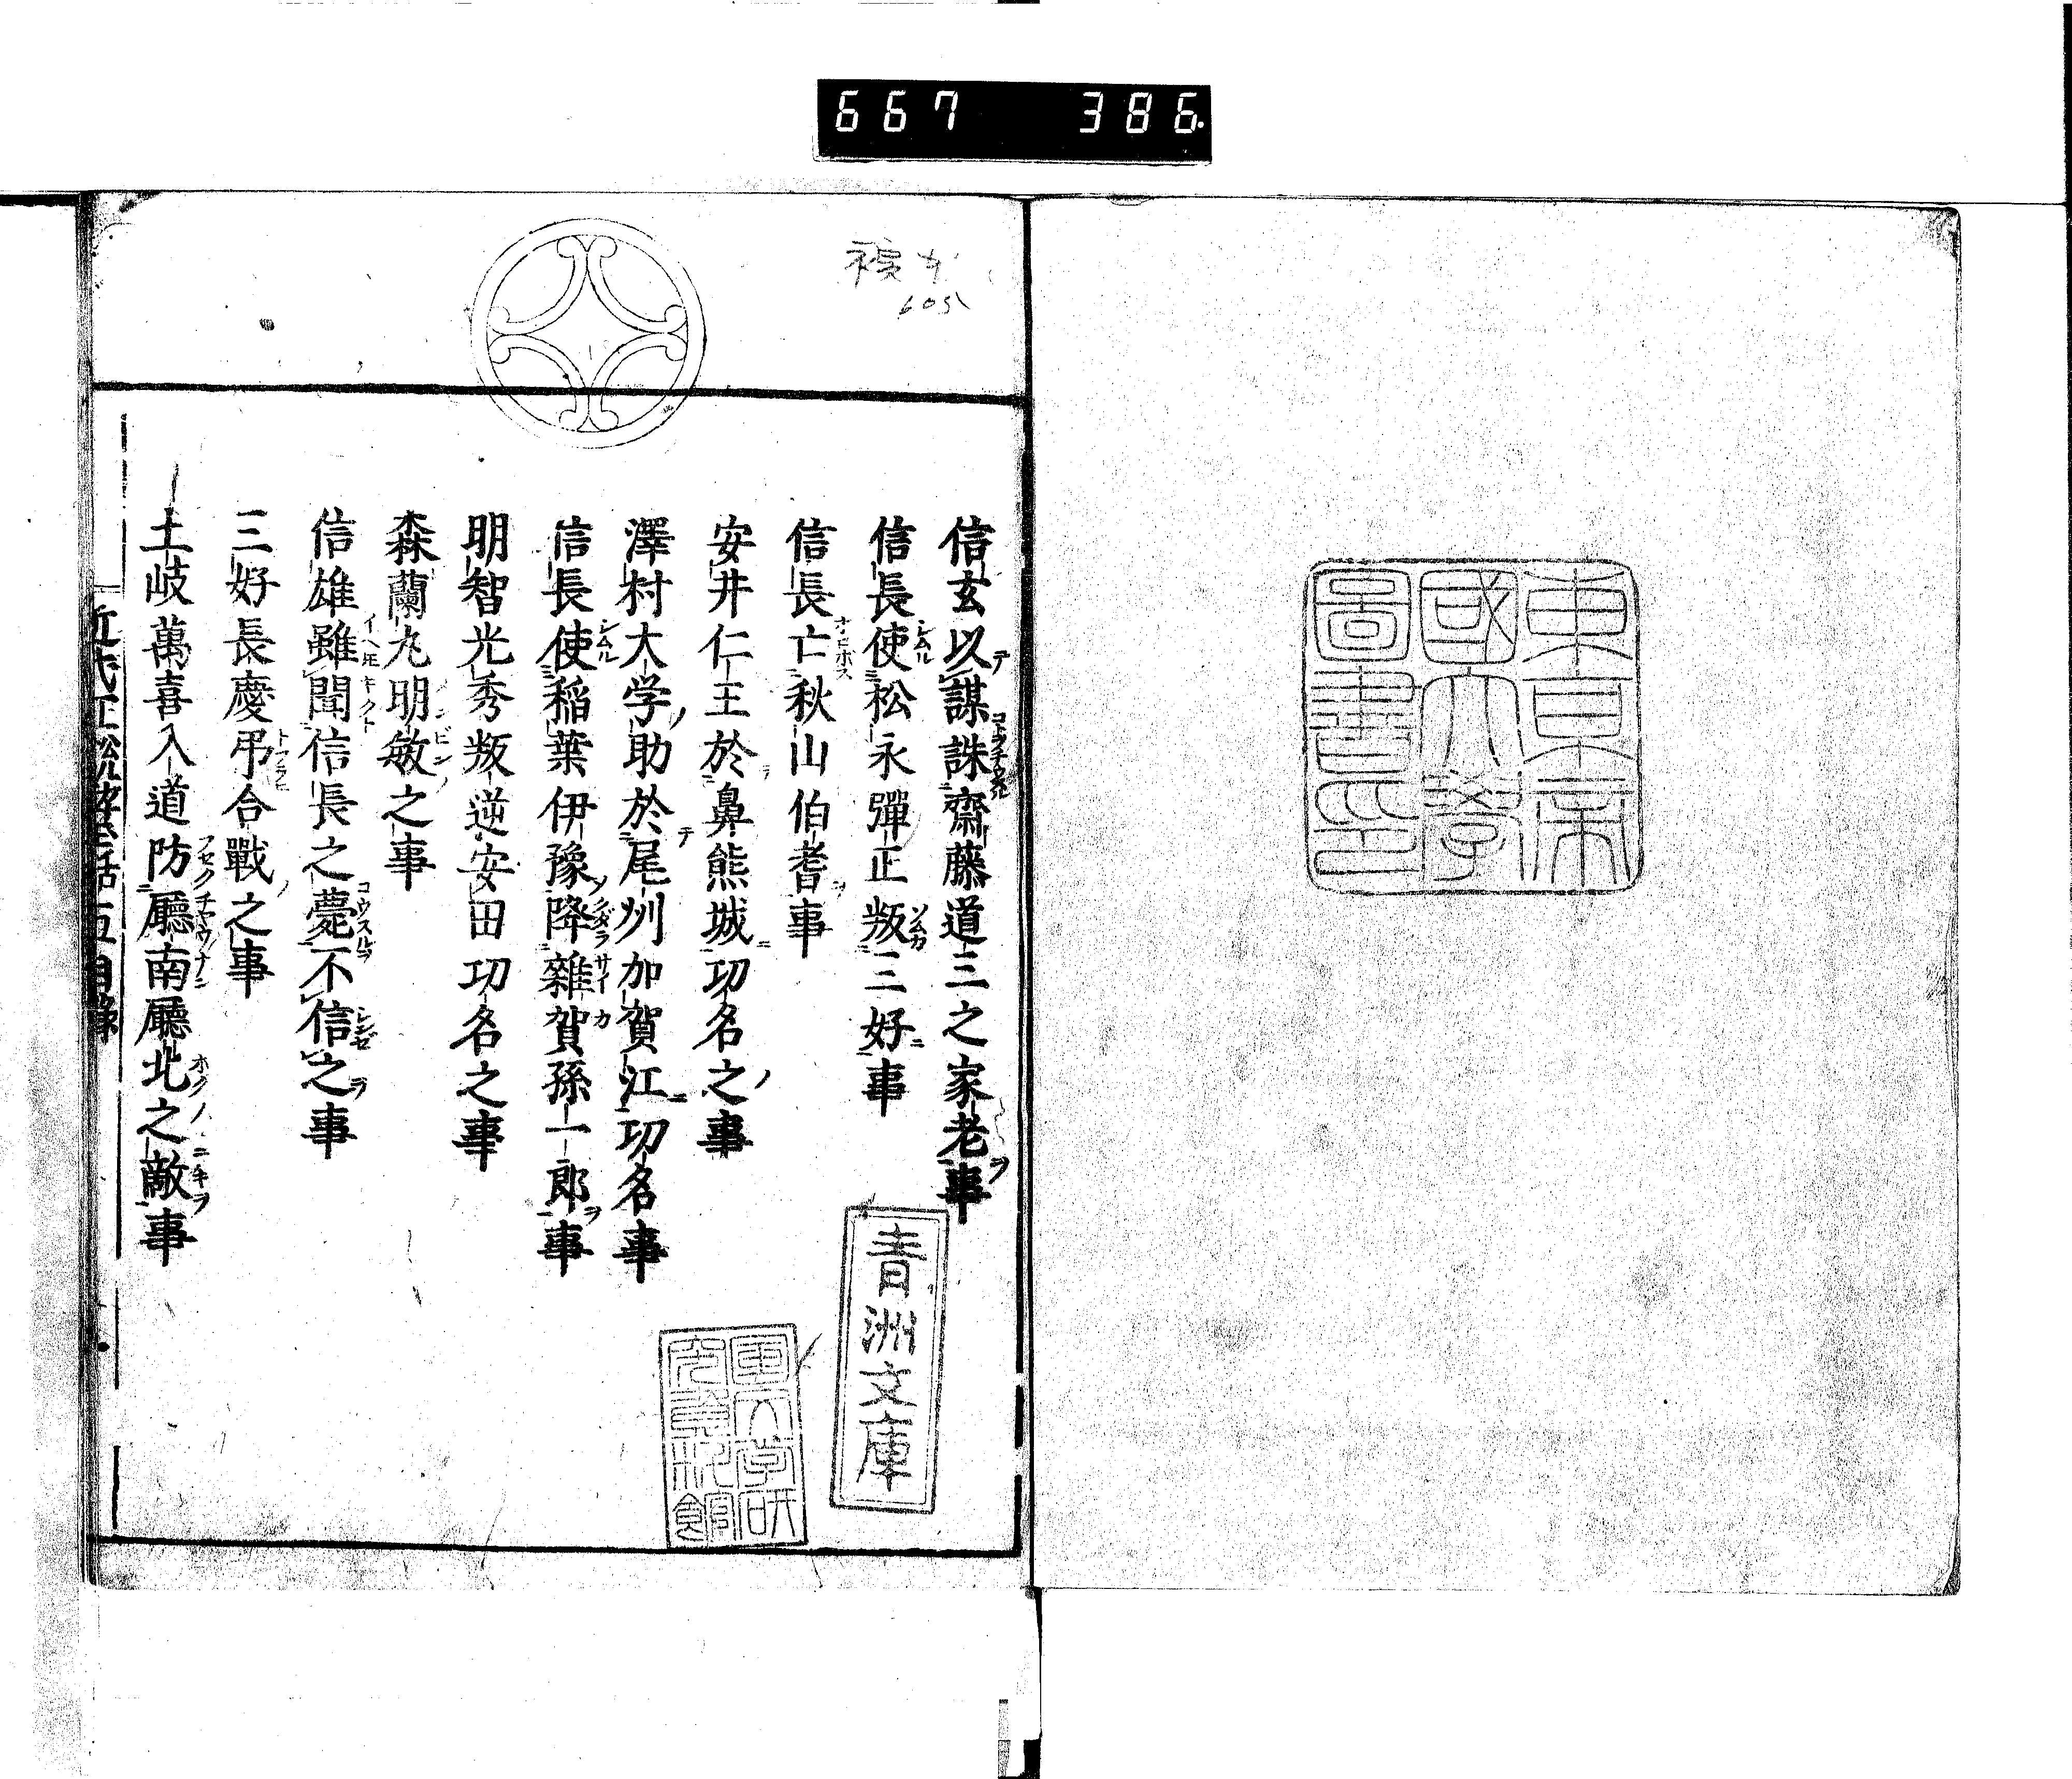 667 386
東京帝
國大學
圖書印
複本
6051
信玄以謀誅齋藤道三之家老事
信長使松永彈正叛三好事
信長亡秋山伯耆事
安井仁王於鼻熊城功名之事
澤村大学助於尾州加賀江功名事
信長使稲葉伊豫降雜賀孫一郎事
明智光秀叛逆安田功名之事
森蘭丸明敏之事
信雄雖聞信長之薨不信之事
三好長慶弔合戰之事
土岐萬喜入道防廳南廳北之敵事
青洲文庫